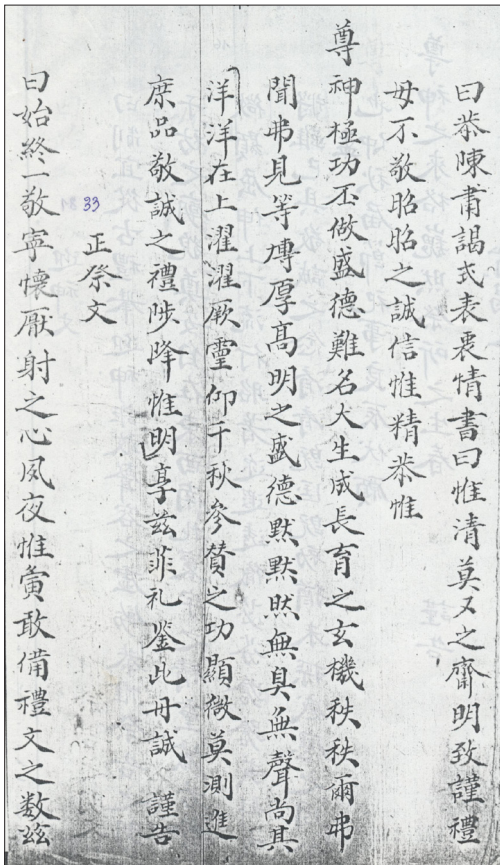 曰恭陳肅謁式表衷情書曰惟清莫又之齋明致謹禮
毋不敬昭昭之誠信惟精恭惟
尊神極功丕做盛德難名大生成長育之玄機秩秩爾弗
聞弗見等博厚髙明之盛德默默然無臭無聲尚其
洋洋在上濯濯厥𤫊仰千秋參賛之功顯微莫測進
庶品敬誠之禮陟降惟明享兹菲礼鉴此丹誠 謹告
33 正祭文
曰始終一敬寧懷厭射之心夙夜惟寅敢備禮文之数兹